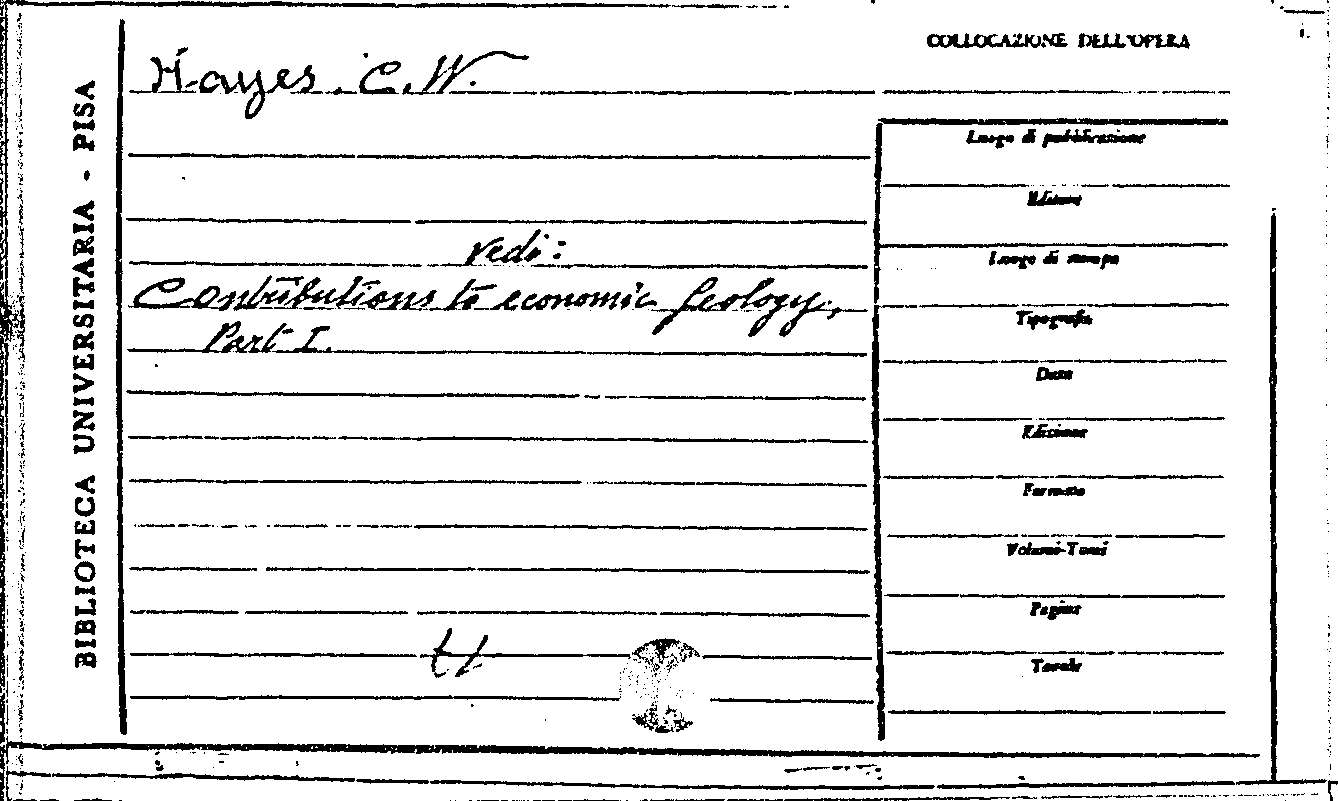 BIBLIOTECA UNIVERSITARIA - PISA
COLLOCAZIONE DELL'OPERA
Hayes. C. W.
vedi:
Contributions to economic Geology,
Part I.
Luogo di pubblicazione
Edizione
Luogo di stampa
Tipografia
Data
Edizione
Formato
Volumi-Tomi
Pagine
Tavole